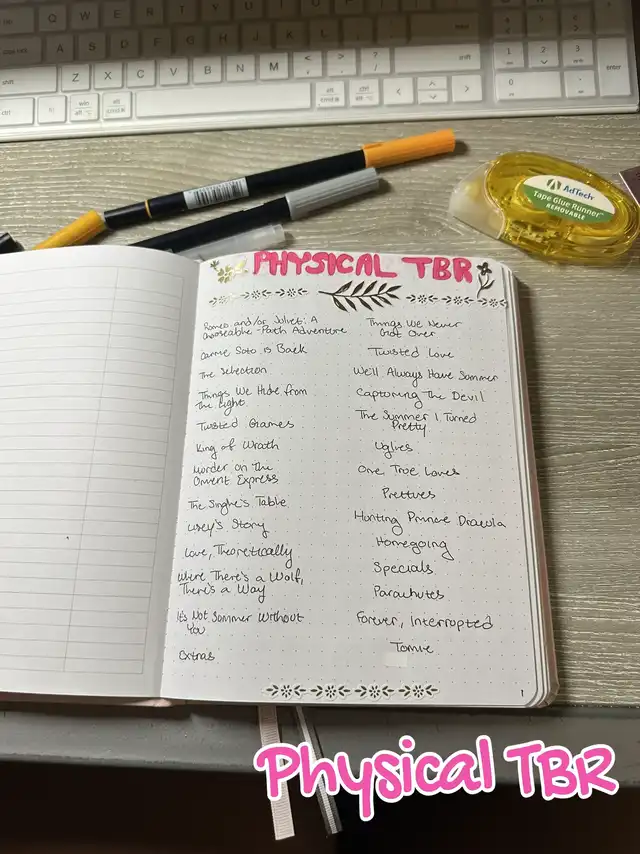 Q W E R T Y U I O P
A S D F G H J K L
shift Z X C V B N M < > ? / shift
1 2 3
0
enter
win
alt
alt
AdTech
Tape Glue Runner
REMOVABLE
PHYSICAL TBR
Romeo and/or Juliet: A
Chooseable-Path Adventure
Carrie Soto is Back
The Selection
Things We Hide from
the Light
Twisted Games
King of Wrath
Murder on the
Orient Express
The Single's Table
Lisey's Story
Love, Theoretically
Where There's a Wolf,
There's a Way
It's Not Summer Without
You
Extras
Things We Never
Got Over
Twisted Love
We'll Always Have Summer
Capturing The Devil
The Summer I Turned
Pretty
Uglies
One True Loves
Pretties
Hunting Prince Dracula
Homegoing
Specials
Parachutes
Forever, Interrupted
Tomie
1
Physical TBR